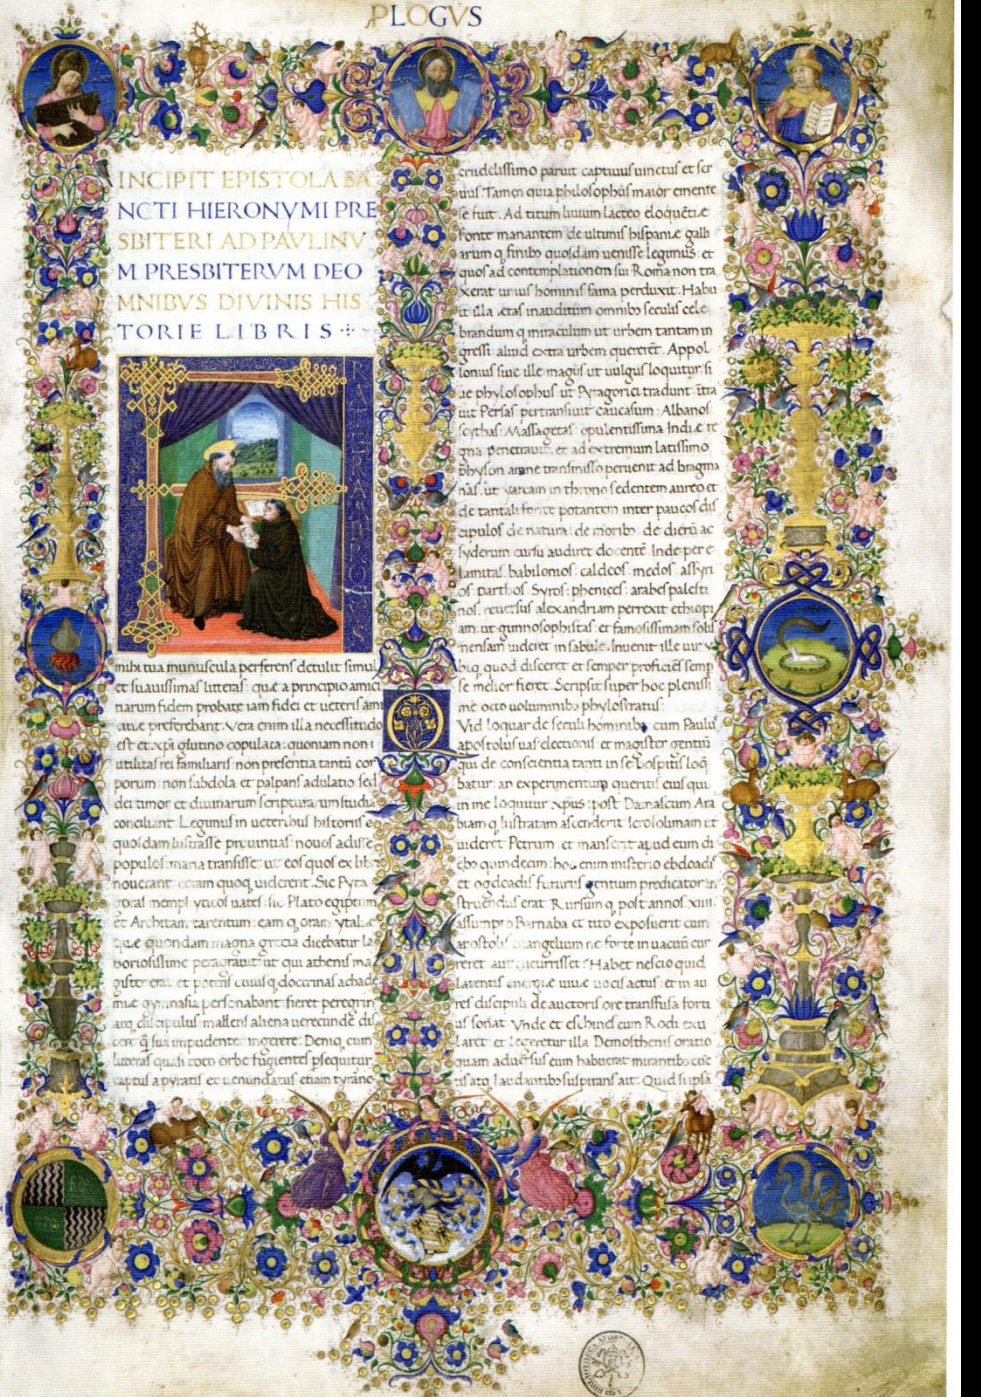 PLOGVS
INCIPIT EPISTOLA BA
NCTI HIERONYMI PRE
SBITERI AD PAVLINV
M PRESBITERVM DE O
MNIBVS DIVINIS HIS
TORIE LIBRIS
FRATER AMBROSIVS
mihi tua munuscula perferens detulit simul
et suauissimas litteras: que a principio amici
tiarum fidem probate iam fidei et ueteris am
preferebant. Vera enim illa necessitudo
est et xpi glutino copulata: quam non
utilitas rei familiaris non presentia tantu cor
porum: non subdola et palpans adulatio sed
dei timor et diuinarum scripturarum studia
conciliant. Legimus in ueteribus historiis
quosdam lustrasse prouintias nouos adisse
populos maria transisse ut eos quos ex libris
nouerant coram quoq uiderent. Sic Pyta
goras memphyticos uates sic Plato egiptum
et Architam tarentinum eam q oram ytalie
que quondam magna grecia dicebatur la
boriosissime peragrauit ut qui athenis ma
gister erat et potens cuius q doctrinas achade
mie gymnasia personabant fieret peregrin
atq discipulus mallens aliena uerecunde dis
cere q sua impudenter ingerere. Deniq cum
litteras quasi toto orbe fugientes psequitur
captus a pyratis et uenundatus etiam tyranno
crudelissimo paruit captiuus uinctus et ser
uus. Tamen quia philosophus maior emente
se fuit. Ad titum liuium lacteo eloquetie
fonte manantem de ultimis hispanie gall
arum q finibus quosdam uenisse legimus et
quos ad contemplationem sui Roma non tra
xerat unius hominis fama perduxit. Habu
it illa etas inauditum omnibus seculis cele
brandum q miraculum ut urbem tantam in
gressi aliud extra urbem quererent. Appol
lonius siue ille magus ut uulgus loquitur si
ue phylosophus ut Pytagorici tradunt. itra
uit Persas pertransiuit caucasum Albanos
scythas Massagetas opulentissima Indie re
gna penetrauit et ad extremum latissimo
physon amne transmisso peruenit ad bragma
nas ut yarcam in throno sedentem aureo et
de tantali fonte potantem inter paucos dis
cipulos de natura de moribus de dieru ac
syderum cursu audiret docente. Inde per e
lamitas babilonios caldeos medos assyri
os parthos Syros phenices arabes palesti
nos reuersus alexandriam perrexit ethiopi
am ut gymnosophistas et famosissimam solis
mensam uideret in sabulo. Inuenit ille uir u
biq quod disceret et semper proficiens semp
se melior fieret. Scripsit super hoc plenissi
me octo uoluminibus phylostratus.
QVid loquar de seculi hominibus cum Paulus
apostolus uas electionis et magister gentiu
qui de conscientia tanti in se hospitis loq
batur an experimentum queritis eius qui
in me loquitur xpus post Damascum Ara
biam q lustratam ascenderit Ierosolimam et
uideret Petrum et manserit apud eum di
ebus quindecim: hoc enim misterio ebdoadis
et ogdoadis futurus gentium predicator in
struendus erat. Rursum q post annos xiiii
assumpto Barnaba et tito exposuerit cum
apostolis euangelium ne forte in uacuu cur
reret aut cucurrisset. Habet nescio quid
latentis energie uiue uocis actus et in au
res discipuli de auctoris ore transfusa forti
us sonat. Vnde et eschines cum Rodi exu
laret et legeretur illa Demosthenis oratio
quam aduersus eum habuerat mirantibus cunc
tis atq laudantibus suspirans ait. Quid si ipsa